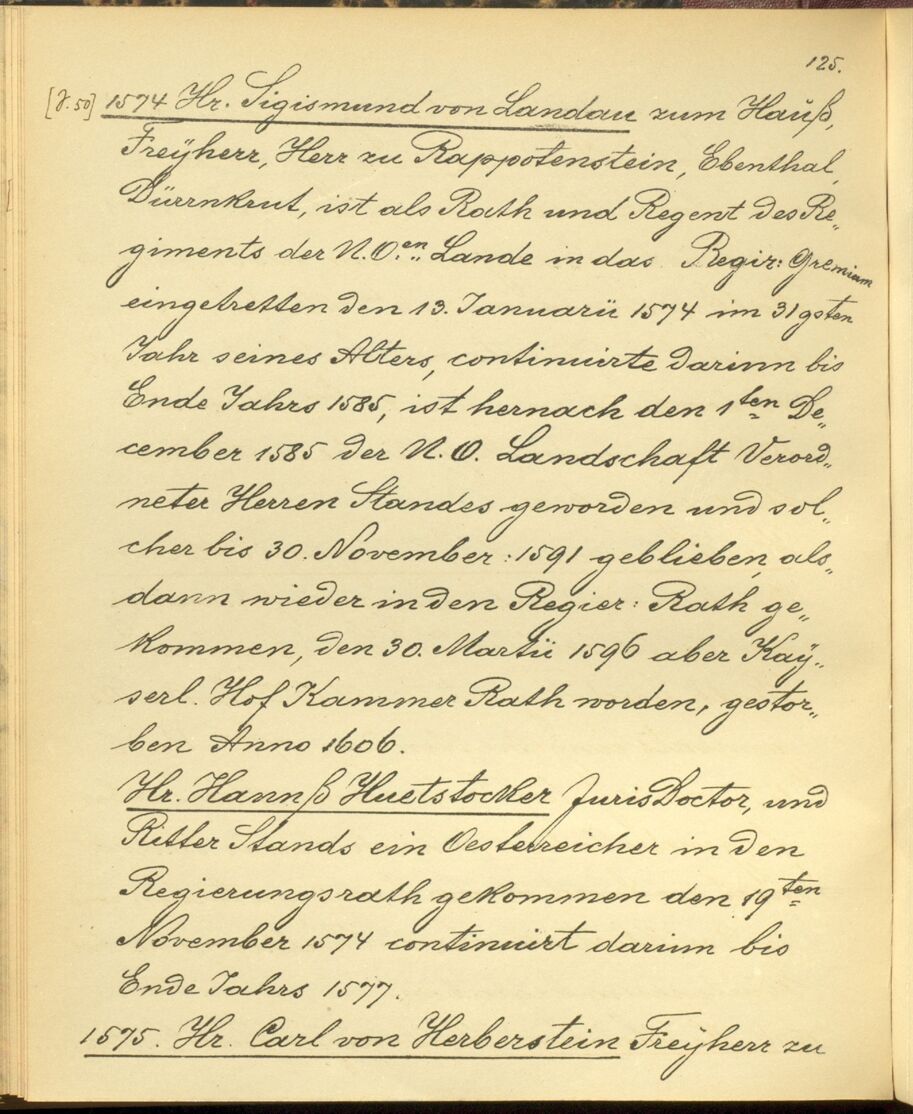 125.
[J. 50] 1574 Hr. Sigismund von Landau zum Hauß,
Freÿherr, Herr zu Rappotenstein, Ebenthal,
Dürrnkrut, ist als Rath und Regent des Re„
giments der N.O.en Lande in das Regir: Gremium
eingetretten den 13. Januarii 1574 im 31gsten
Jahr seines Alters, continuirte darinn bis
Ende Jahrs 1585, ist hernach den 1ten De„
cember 1585 der N.O. Landschaft Verord„
neter Herren Standes geworden und sol„
cher bis 30. November 1591 geblieben, als„
dann wieder in den Regier: Rath ge„
kommen, den 30. Martii 1596 aber Kaÿ„
serl. Hof Kammer Rath worden, gestor„
ben Anno 1606.
Hr. Hannß Huetstocker Juris Doctor, und
Ritter Stands ein Oesterreicher in den
Regierungsrath gekommen den 19ten
November 1574 continuirt darinn bis
Ende Jahrs 1577.
1575. Hr. Carl von Herberstein Freÿherr zu